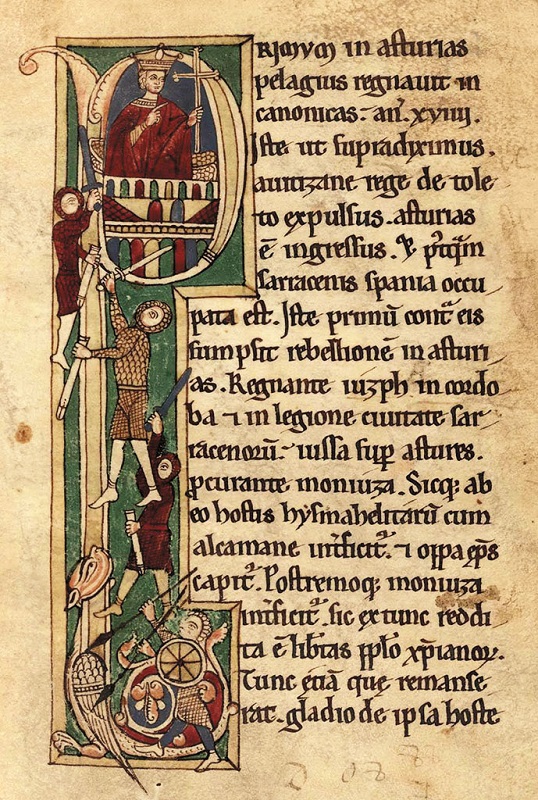 Rimum in asturias
pelagius regnauit in
canonicas· an̄. xviiii.
Iste ut supradiximus.
auitizane rege de tole
to expulsus. asturias
ē ingressus. & p̄tq̄m
sarracenis spania occu
pata est. Iste primū cont̄ eis
sumpsit rebellionē in asturi
as. Regnante iuzph in cordo
ba ⁊ in legione ciuitate sar
racenorū· iussa sup̄ astures.
ꝓcurante moniuza. Sicq; ab
eo hostis hysmahelitarū cum
alcamane int̄ficit̄. ⁊ oppa ep̄s
capit̄. Postremoq; moniuza
int̄ficit̄. sic ex tunc reddi
ta ē lib̄tas pp̄lo xp̄ianoꝝ.
Tunc etiā que remanse
rat. gladio de ipsa hoste